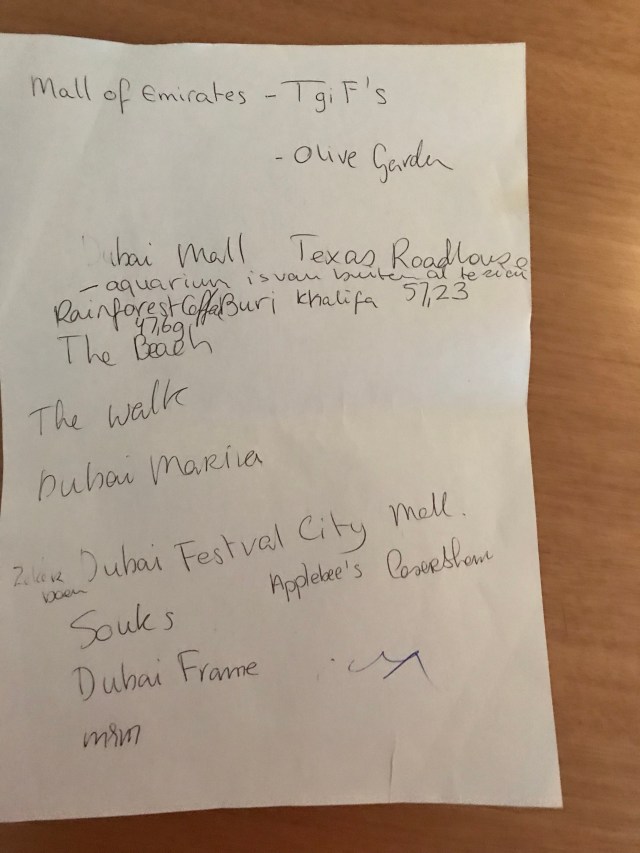 Mall of Emirates - TgiF's
- Olive Garden
Dubai Mall Texas Roadhouse
- aquarium is van buiten al te zien
Rainforest Caffe Buri Khalifa 57,23
47,69
The Beach
The Walk
Dubai Marina
Dubai Festval City Mall.
Applebee's
Souks
Dubai Frame